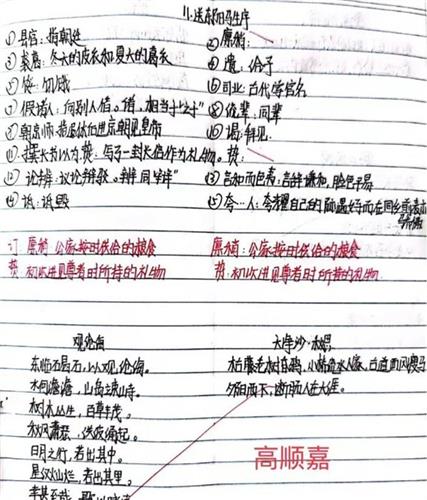 11.送东阳马生序
① 县官：指朝廷 ② 廪稍：
③ 裘葛：冬天的皮衣和夏天的葛衣 ④ 遗：给予
⑤ 馁：饥饿 ⑥ 司业：古代学官名
⑦ 假诸人：向别人借。诸，相当于“之于” 侪辈：同辈
朝京师：指居外任进京朝见皇帝 ⑩ 谒：拜见
撰长书以为贽：写了一封长信作为礼物。贽：
论辨：议论辩驳。辨同“辩” ⑬ 言和而色夷：言辞谦和，脸色平易
⑭ 诋：诋毁 ⑮ 夸…人：夸耀自己的际遇好而在同乡
订 廪稍：公家按时供给的粮食 廪稍：公家按时供给的粮食
贽：初次进见尊者时所持的礼物 贽：初次进见尊者时所持的礼物
观沧海
东临碣石，以观沧海。
水何澹澹，山岛竦峙。
树木丛生，百草丰茂。
秋风萧瑟，洪波涌起。
日月之行，若出其中。
星汉灿烂，若出其里。
幸甚至哉，歌以咏志
天净沙·秋思
枯藤老树昏鸦，小桥流水人家，古道西风瘦马
夕阳西下，断肠人在天涯。
高顺嘉